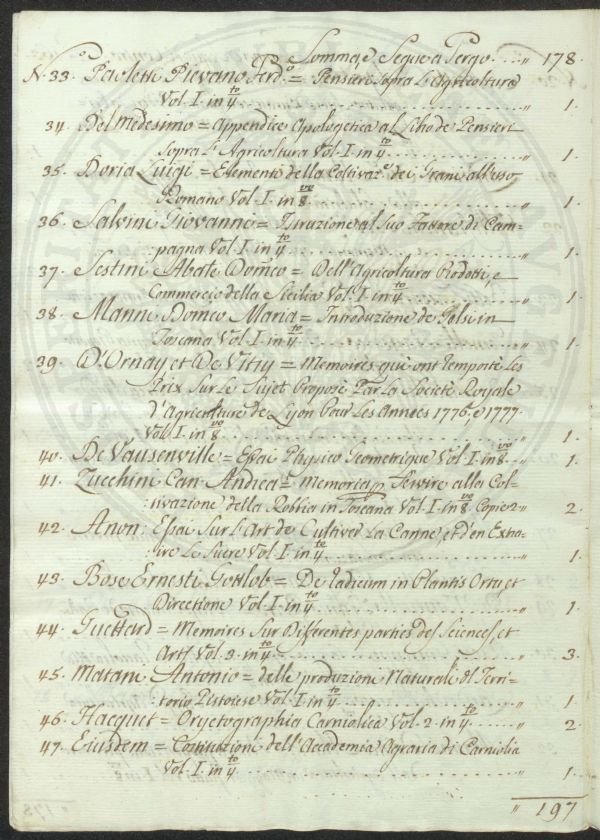 Somma, e Segue a Tergo .. „ 178.
N.° 33. Paoletti Pievano Ferd.° = Pensieri Sopra L'Agricoltura
Vol. I. in 4.to „ 1.
34. Del Medesimo = Appendice Apologetica al Libo de Pensieri
Sopra L'Agricoltura Vol. I. in 4.to „ 1.
35. Doria Luigi = Elementi della Coltivaz.e dei Grani all'uso
Romano Vol. I. in 8.vo „ 1.
36. Salvini Giovanni = Istruzione al Suo Fattore di Cam=
pagna Vol. I. in 4.to „ 1.
37. Sestini Abate Dom.co = Dell'Agricoltura Prodotti, e
Commercio della Sicilia Vol. I. in 4.to „ 1.
38. Manni Domco Maria = Introduzione de Gelsi in
Toscana Vol. I. in 4.to „ 1.
39. D'Ornay et De Vitry = Memoires qui ont remporte Les
Prix Sur Le Sujet Proposè Par La Societè Royale
d'Agriculture de Lyon Pour Les Annèes 1776, e 1777.
Vol. I. in 8.vo „ 1.
40. De Vausenville = Essai Physico Geometrique Vol. I. in 8.vo „ 1.
41. Zucchini Can. Andrea = Memoria p. Servire alla Col=
:tivazione della Robbia in Toscana Vol. I. in 8.vo Copie 2 „ 2.
42. Anon: Essai Sur L'Art de Cultiver La Canne, et d'en Extra=
:ire Le Sucre Vol. I. in 4.to „ 1.
43. Bose Ernesti Gottlob = De Radicum in Plantis Ortu, et
Directione Vol. I. in 4.to „ 1.
44. Guettard = Memoires Sur Differentes parties des Sciences, et
Arts Vol. 3. in 4.to „ 3.
45. Matani Antonio = delle produzioni Naturali del Terri=
:torio Pistoiese Vol. I. in 4.to „ 1.
46. Hacquet = Oryctographia Carniolica Vol. 2. in 4.to „ 2.
47. Eiusdem = Costituzioni dell'Accademia Agraria di Carniolia
Vol. I. in 4.to „ 1.
„ 197